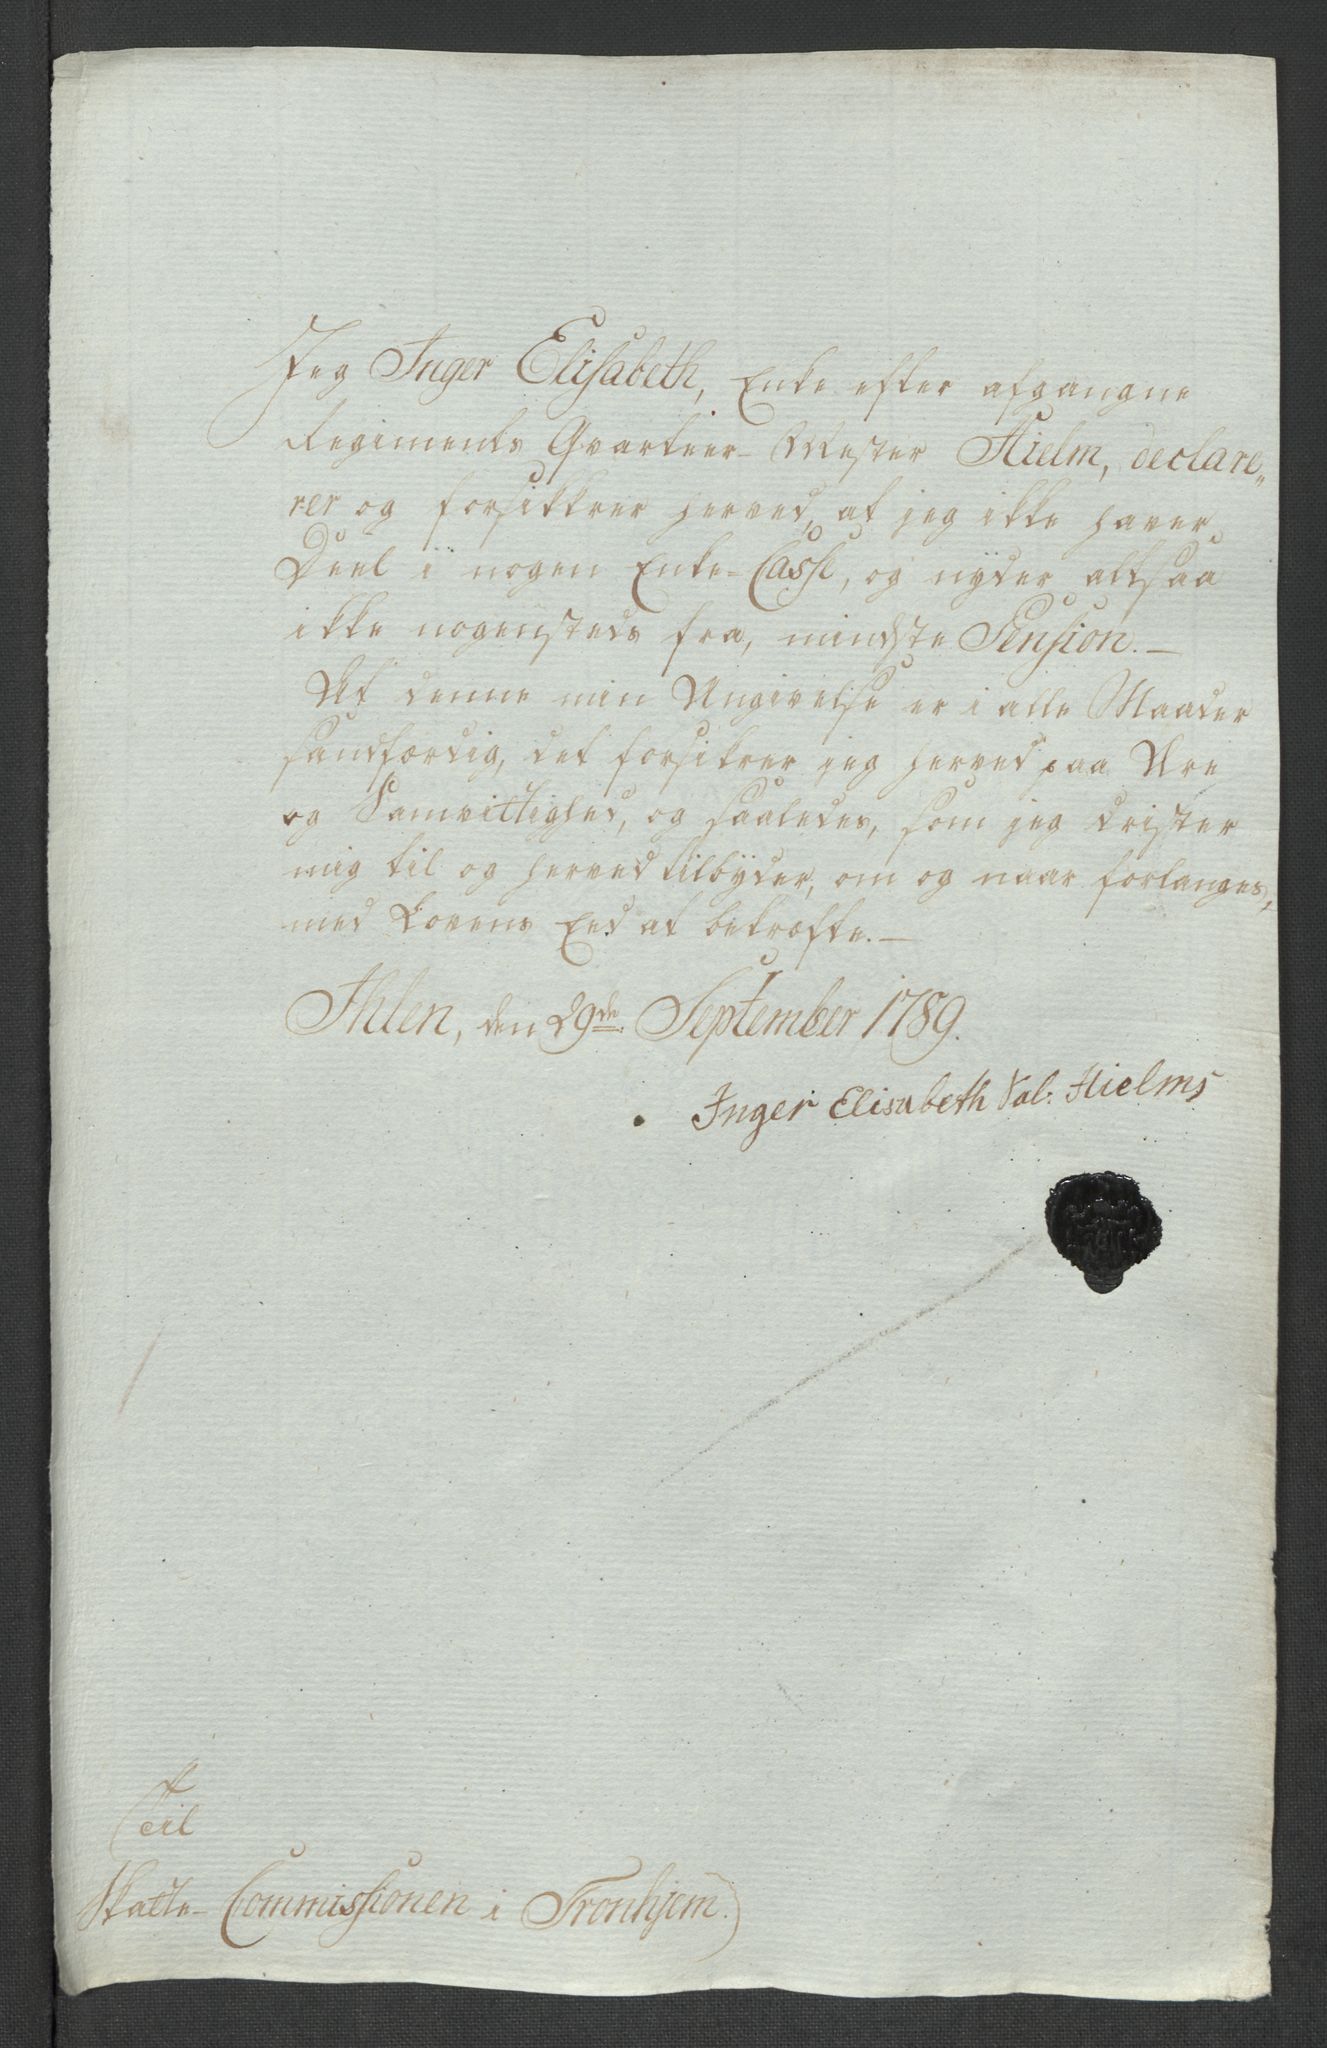 Jeg Inger Elisabeth, Enke efter afgangne
Regiments Qvarteer-Mester Hielm, declare„
rer og forsikkrer herved, at jeg ikke haver
Deel i nogen Enke-Casse, og nyder altsaa
ikke nogensteds fra, mindste Pension. —
At denne min Angivelse er i alle Maader
sandfærdig, det forsikrer jeg herved paa Ære
og Samvittighed, og saaledes, som jeg drister
mig til og herved tilbyder, om og naar forlanges,
med Lovens Eed at bekræfte. —
Ihlen, den 29de September 1789.
Inger Elisabeth Sal: Hielms
Til
Skatte-Commissionen i Tronhjem.